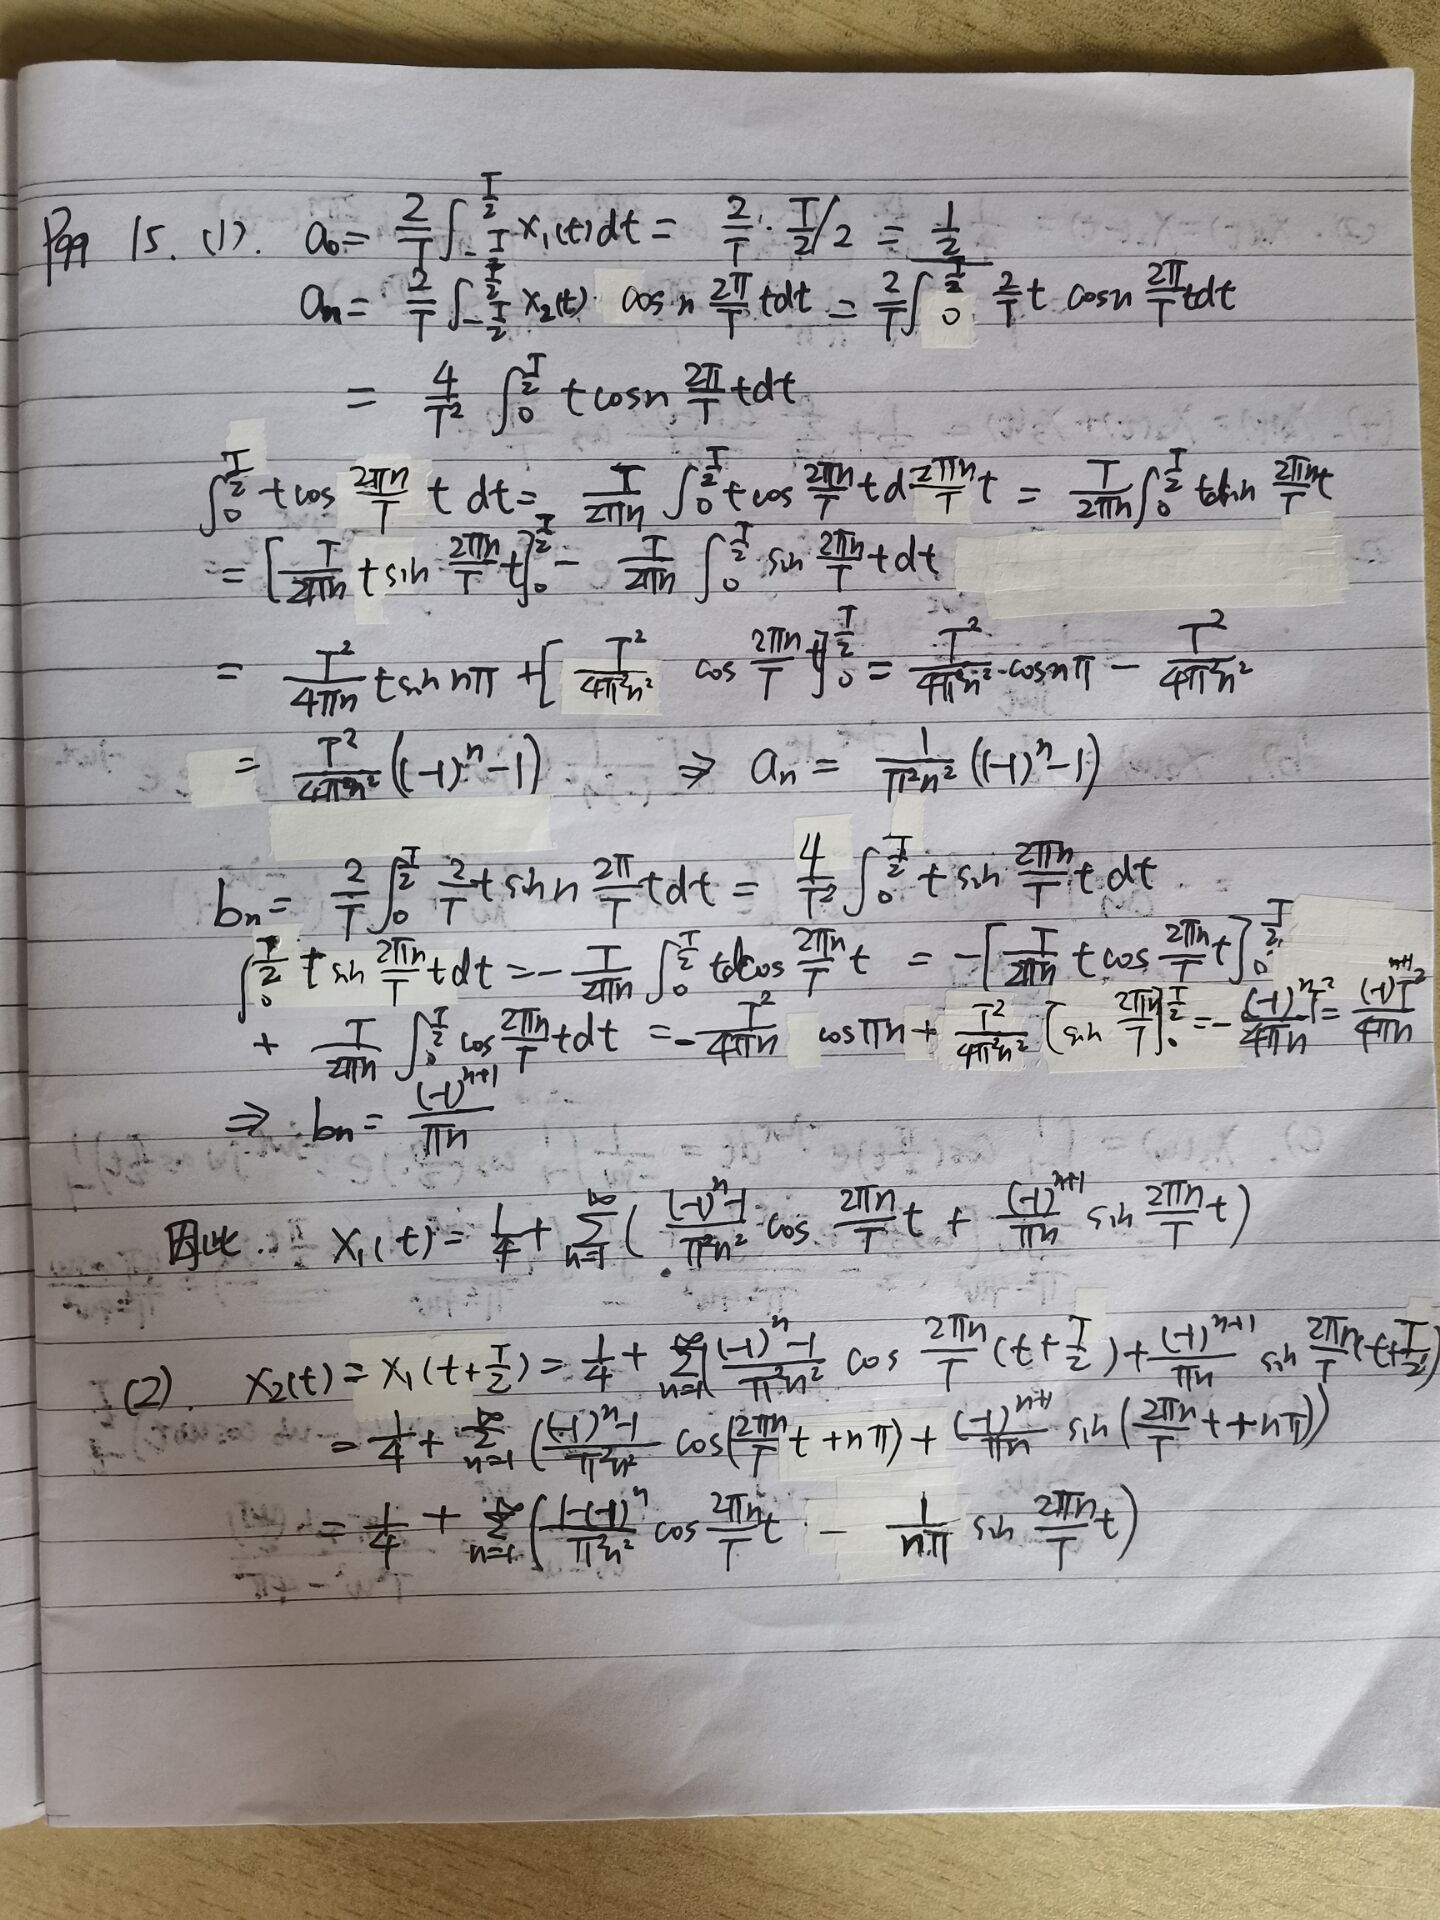 P99 15. (1). a₀ = 2/T ∫_{-T/2}^{T/2} x₁(t)dt = 2/T · T/2 /2 = 1/2
aₙ = 2/T ∫_{-T/2}^{T/2} x₂(t) cos n 2π/T t dt = 2/T ∫_0^{T/2} 2/T t cos n 2π/T t dt
= 4/T² ∫_0^{T/2} t cos n 2π/T t dt
∫_0^{T/2} t cos 2πn/T t dt = T/2πn ∫_0^{T/2} t cos 2πn/T t d 2πn/T t = T/2πn ∫_0^{T/2} t dsin 2πn/T t
= [T/2πn t sin 2πn/T t]_0^{T/2} - T/2πn ∫_0^{T/2} sin 2πn/T t dt
= T²/4πn t sin nπ + [T²/4π²n² cos 2πn/T t]_0^{T/2} = T²/4π²n² · cos nπ - T²/4π²n²
= T²/4π²n² ((-1)ⁿ-1) ⇒ aₙ = 1/π²n² ((-1)ⁿ-1)
bₙ = 2/T ∫_0^{T/2} 2/T t sin n 2π/T t dt = 4/T² ∫_0^{T/2} t sin 2πn/T t dt
∫_0^{T/2} t sin 2πn/T t dt = - T/2πn ∫_0^{T/2} t dcos 2πn/T t = -[T/2πn t cos 2πn/T t]_0^{T/2}
+ T/2πn ∫_0^{T/2} cos 2πn/T t dt = - T²/4πn cos πn + T²/4π²n² [sin 2πn/T]_0^{T/2} = - (-1)ⁿT²/4πn = (-1)ⁿ⁺¹T²/4πn
⇒ bₙ = (-1)ⁿ⁺¹/πn
因此. x₁(t) = 1/4 + ∑_{n=1}^{∞} ( (-1)ⁿ-1/π²n² cos 2πn/T t + (-1)ⁿ⁺¹/πn sin 2πn/T t )
(2). x₂(t) = x₁(t+T/2) = 1/4 + ∑_{n=1}^{∞} (-1)ⁿ-1/π²n² cos 2πn/T (t+T/2) + (-1)ⁿ⁺¹/πn sin 2πn/T (t+T/2)
= 1/4 + ∑_{n=1}^{∞} ( (-1)ⁿ-1/π²n² cos(2πn/T t + nπ) + (-1)ⁿ⁺¹/πn sin(2πn/T t + nπ))
= 1/4 + ∑_{n=1}^{∞} ( 1-(-1)ⁿ/π²n² cos 2πn/T t - 1/nπ sin 2πn/T t )